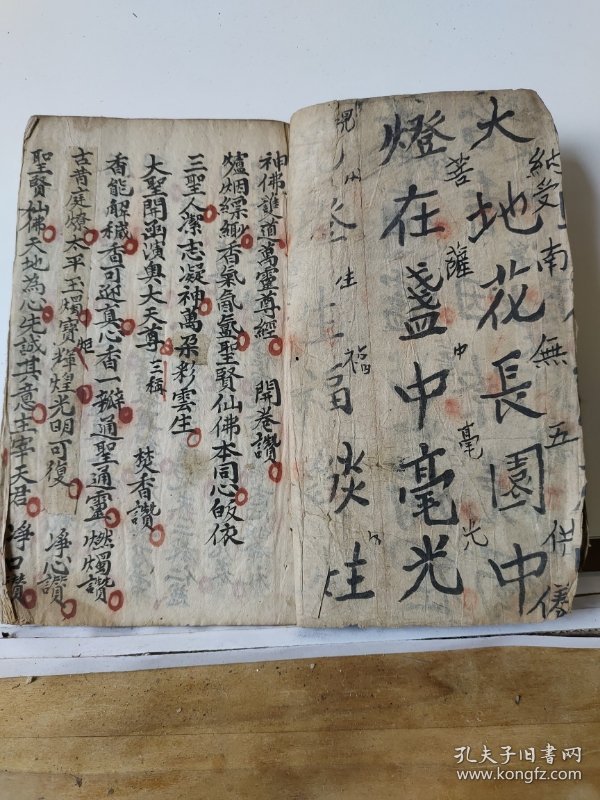 大地花長園中
燈在盞中毫光
納受南無五供
菩薩
中
毫光
福
神佛誰道萬靈尊經 開卷讚
爐烟縹緲香氣氤氳聖賢仙佛本同心皈依
三聖人潔志凝神萬朶彩雲生
大聖開幽演輿大天尊 三稱 焚香讚
香能解穢香可遊真心香一瓣通聖通靈 燃燭讚
古黃庭燎太平玉燭寶輝煌光明可復 淨心讚
炬
聖賢仙佛天地為心先誠其意主宰天君 淨口讚
孔夫子旧书网
www.kongfz.com